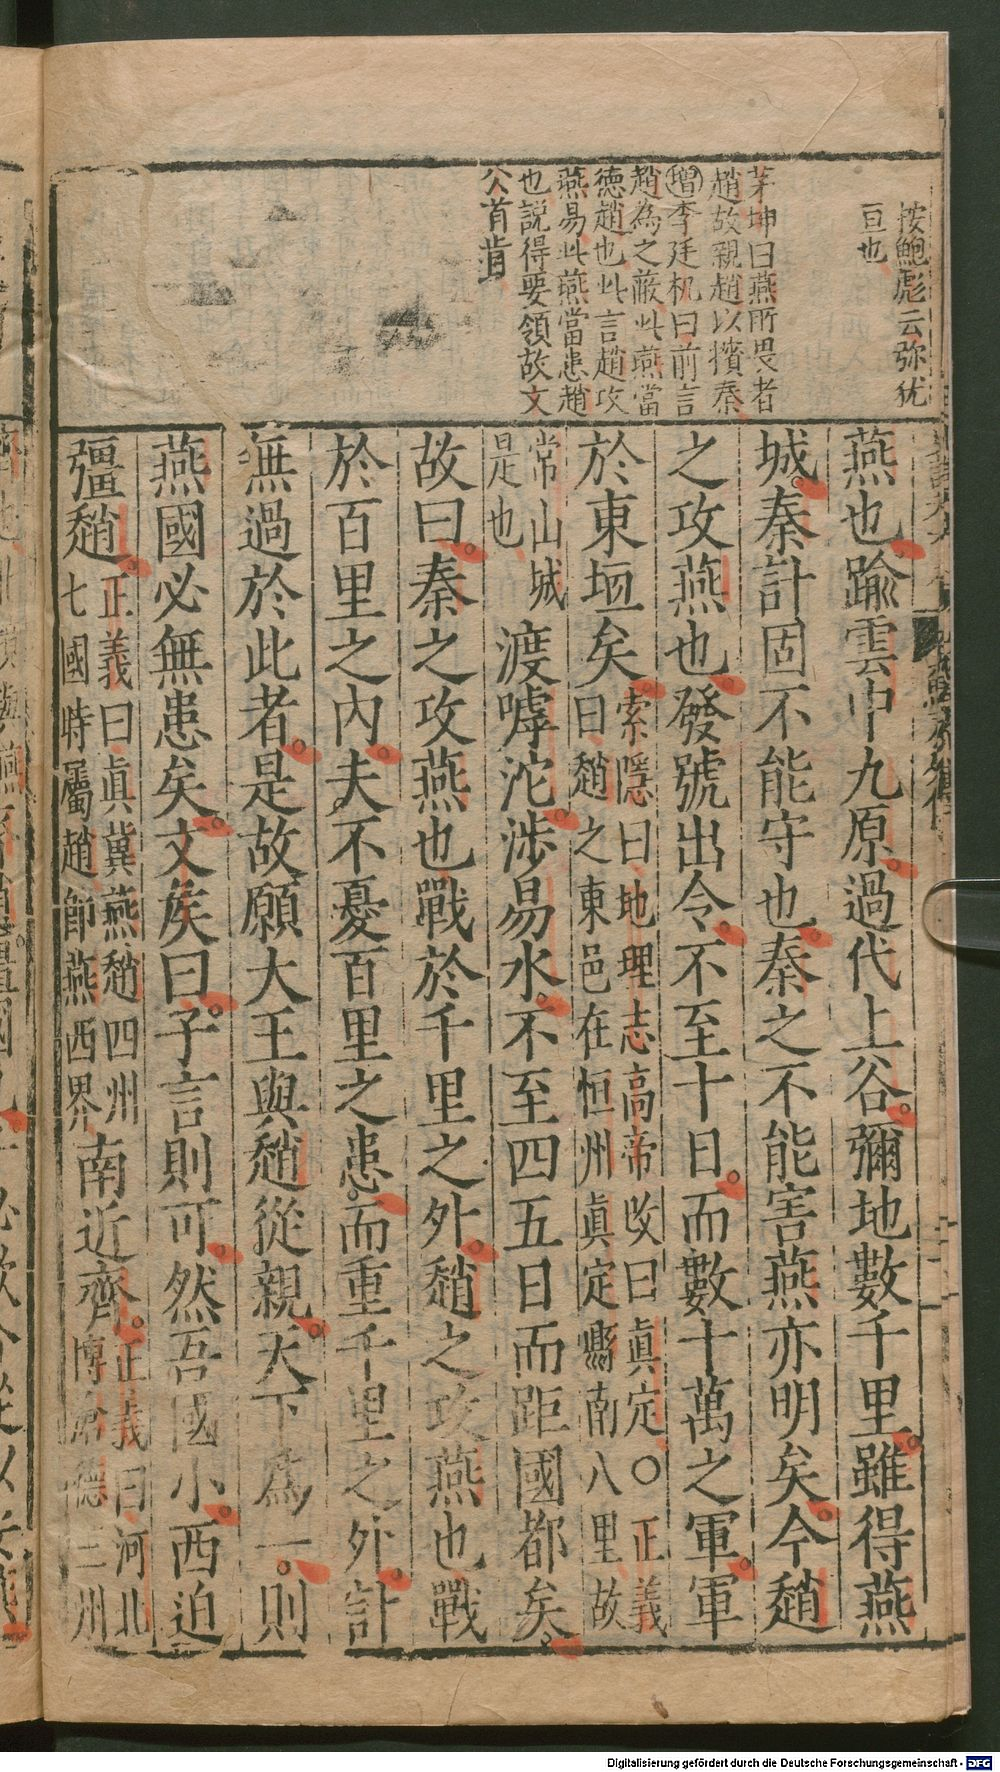 按鮑彪云弥犹
亘也
茅坤曰燕所畏者
趙故親趙以擯秦
增李廷机曰前言
趙為之蔽此燕當
德趙也此言趙攻
燕易此燕當患趙
也説得要領故文
公首肯
燕也踰雲中九原過代上谷彌地數千里雖得燕
城秦計固不能守也秦之不能害燕亦明矣今趙
之攻燕也發號出令不至十日而數十萬之軍軍
於東垣矣
索隱曰地理志高帝改曰真定〇正義
曰趙之東邑在恒州真定縣南八里故
常山城
是也
渡嘑沱涉易水不至四五日而距國都矣
故曰秦之攻燕也戰於千里之外趙之攻燕也戰
於百里之內夫不憂百里之患而重千里之外計
無過於此者是故願大王與趙從親天下爲一則
燕國必無患矣文侯曰子言則可然吾國小西迫
彊趙
正義曰真冀燕趙四州
七國時屬趙即燕西界
南近齊
正義曰河北
博滄德三州
Digitalisierung gefördert durch die Deutsche Forschungsgemeinschaft - DFG